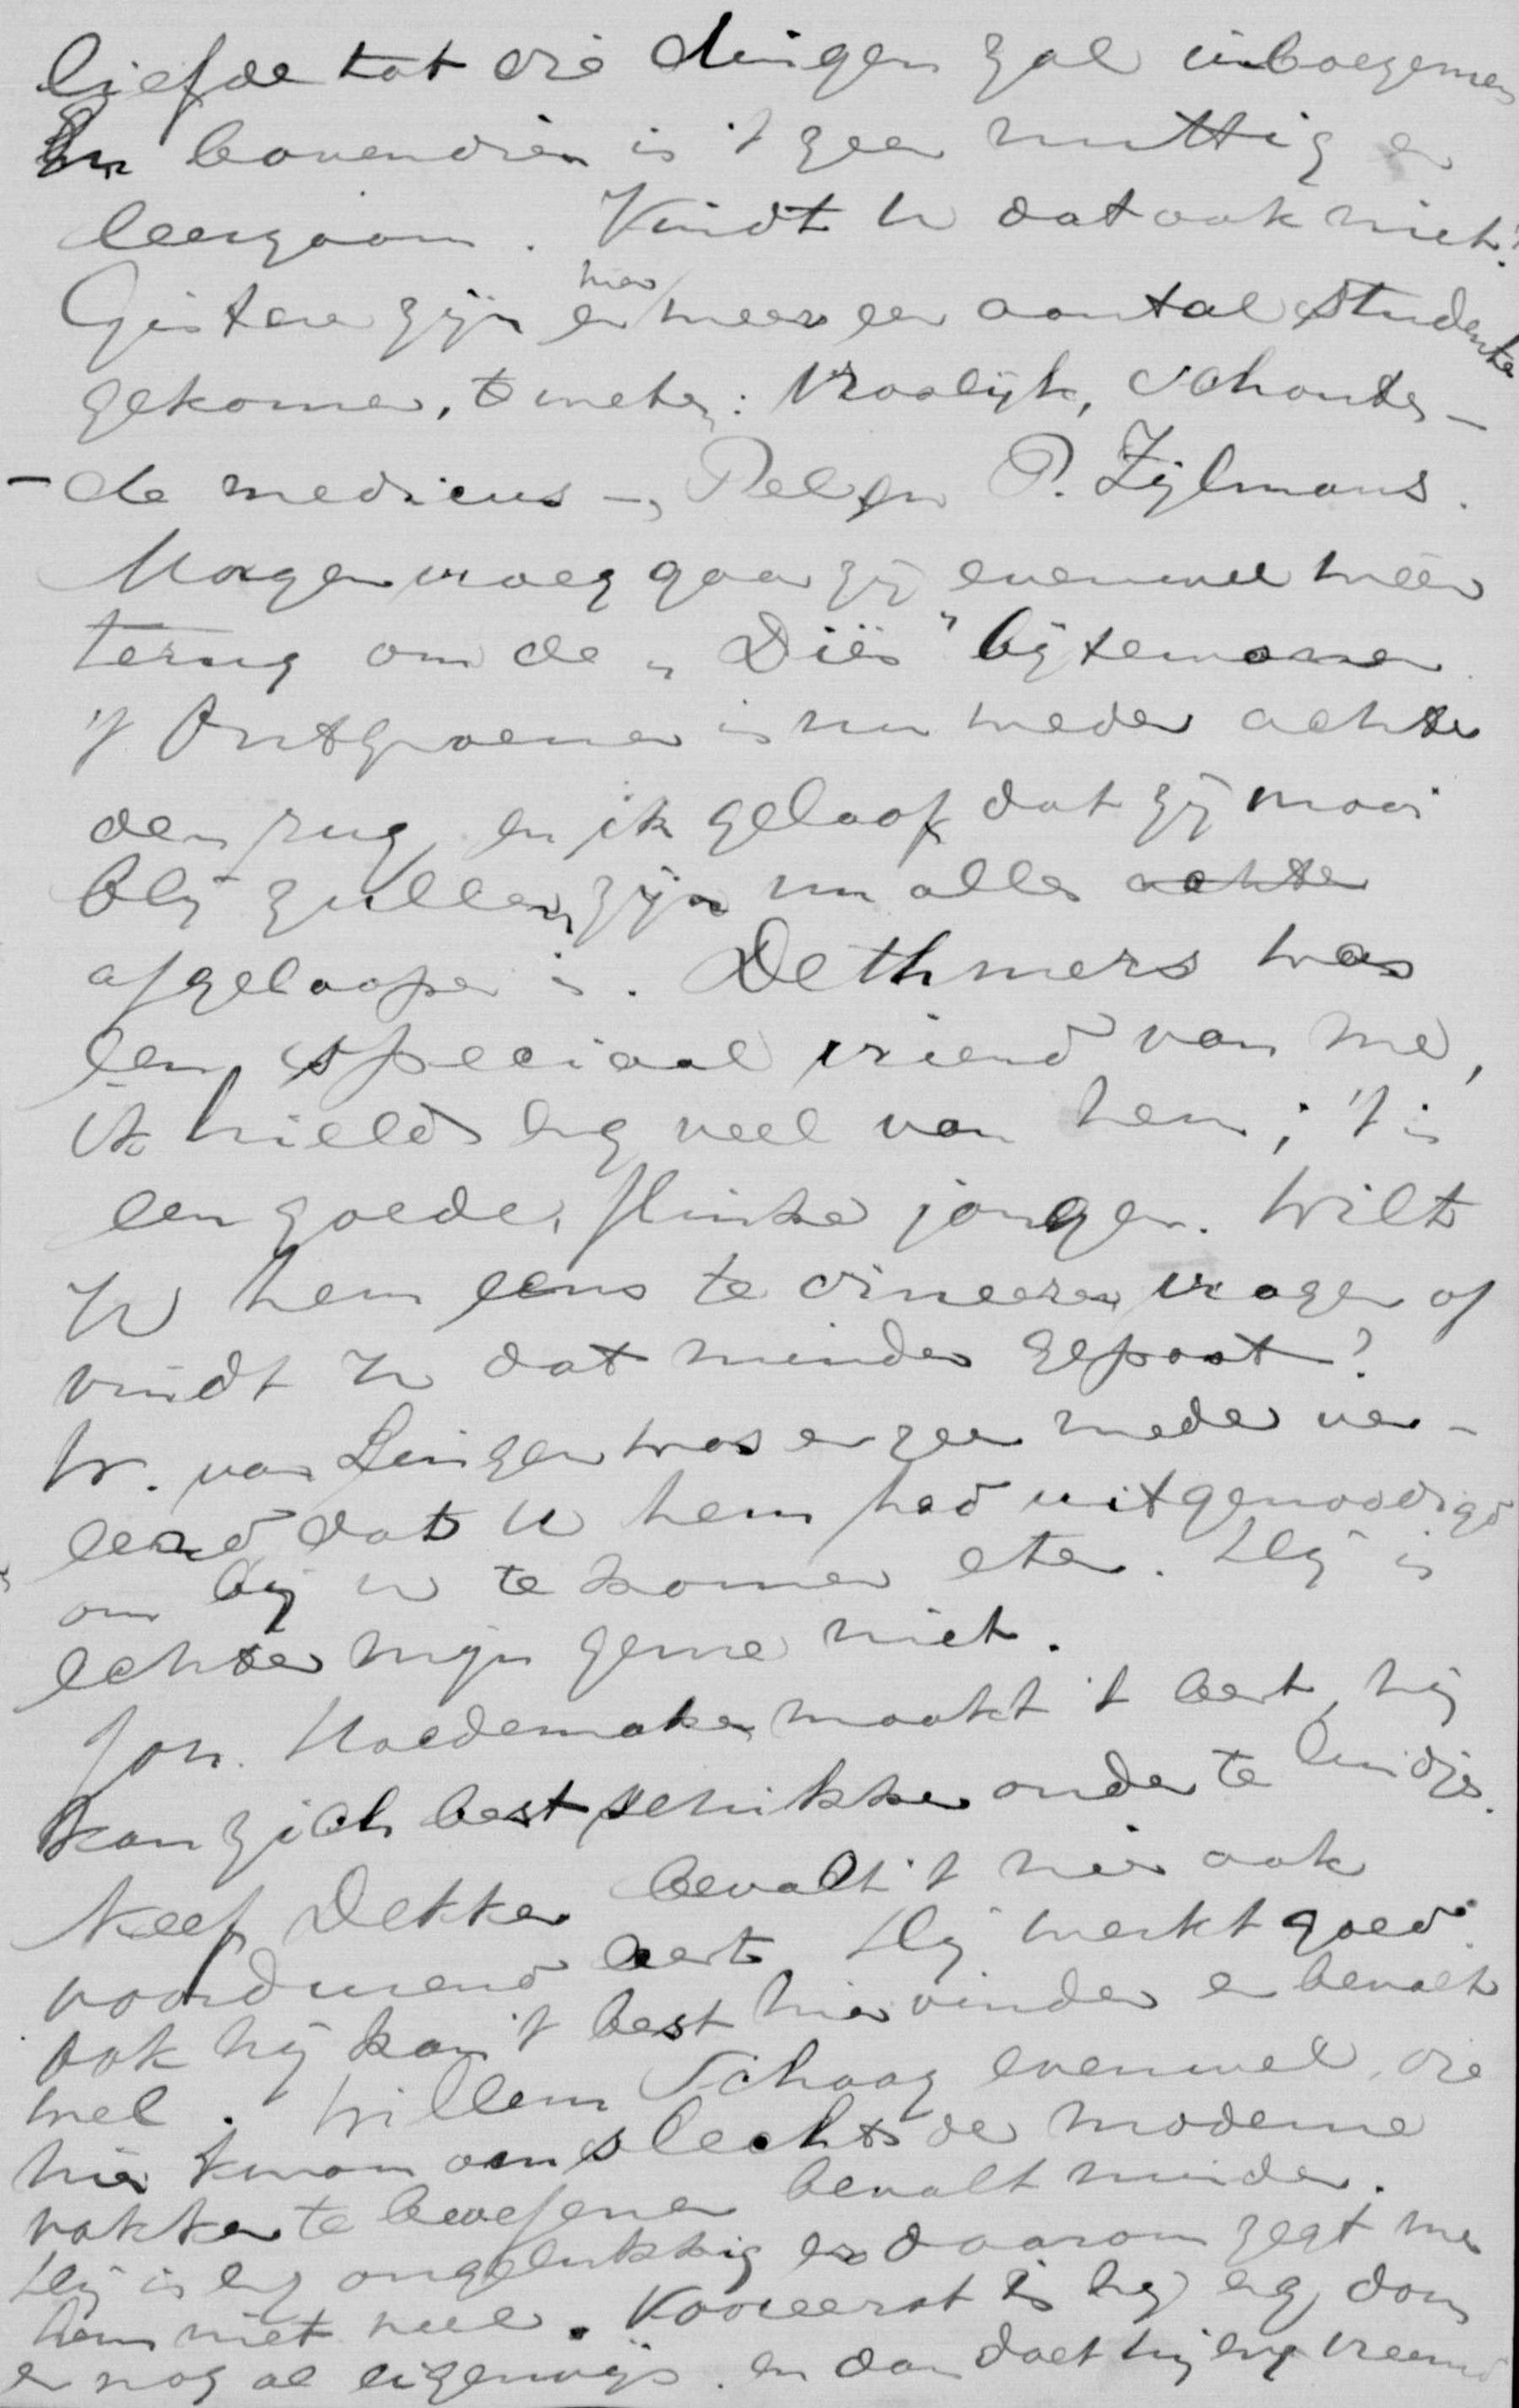 liefde tot die dingen zal inboezemen
En bovendien is 't zeer nuttig en
leerzaam. Vindt U dat ook niet?
Gisteren zijn er hier weer een aantal studenten
gekomen, te weten: Vroolijk, Schouten –
– de medicus –, Pel en P. Zijlmans.
Morgen vroeg gaan zij evenwel weer
terug om de „Diës" bijtewonen.
't Ontgroenen is nu weder achter
den rug, en ik geloof dat zij mooi
blij zullen zijn nu alles achter
afgeloopen is. Dethmers was
een speciaal vriend van me,
ik hield erg veel van hem; 't is
een goede, flinke jongen. Wilt
U hem eens te dineeren vragen of
vindt U dat minder gepast?
W. van Lingen was er zeer mede ver-
eerd dat U hem had uitgenoodigd
om bij U te komen eten. Hij is
echter mijn genre niet.
Joh. Hoedemaker maakt 't best, hij
kan zich best schikken onder te luidjes.
Neef Dekker bevalt 't hier ook
voordurend best. Hij werkt goed.
ook hij kan 't best hier vinden en bevalt
wel. Willem Schaag evenwel, die
hier kwam om slechts de moderne
vakken te beoefenen bevalt minder.
Hij is erg ongelukkig en daarom zegt me
hem niet veel. Vooreerst is hij erg dom
en nog al eigenwijs. en dan doet hij erg vreemd